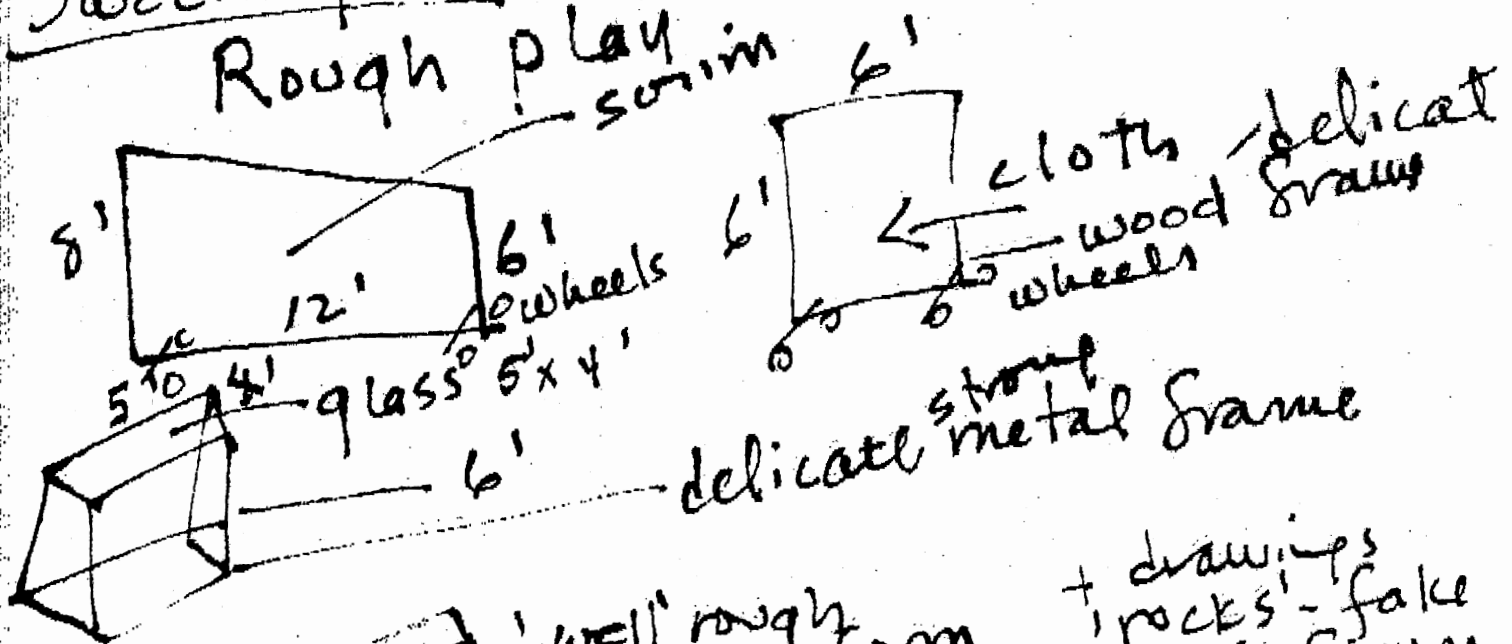 Rough play
scrim
6'
8'
6'
12'
wheels
6'
cloth - delicat
wood frame
wheels
5' 4'
glass 5' x 4'
6'
delicate strong metal frame
'well' rough
+ drawings
'rocks' - fake